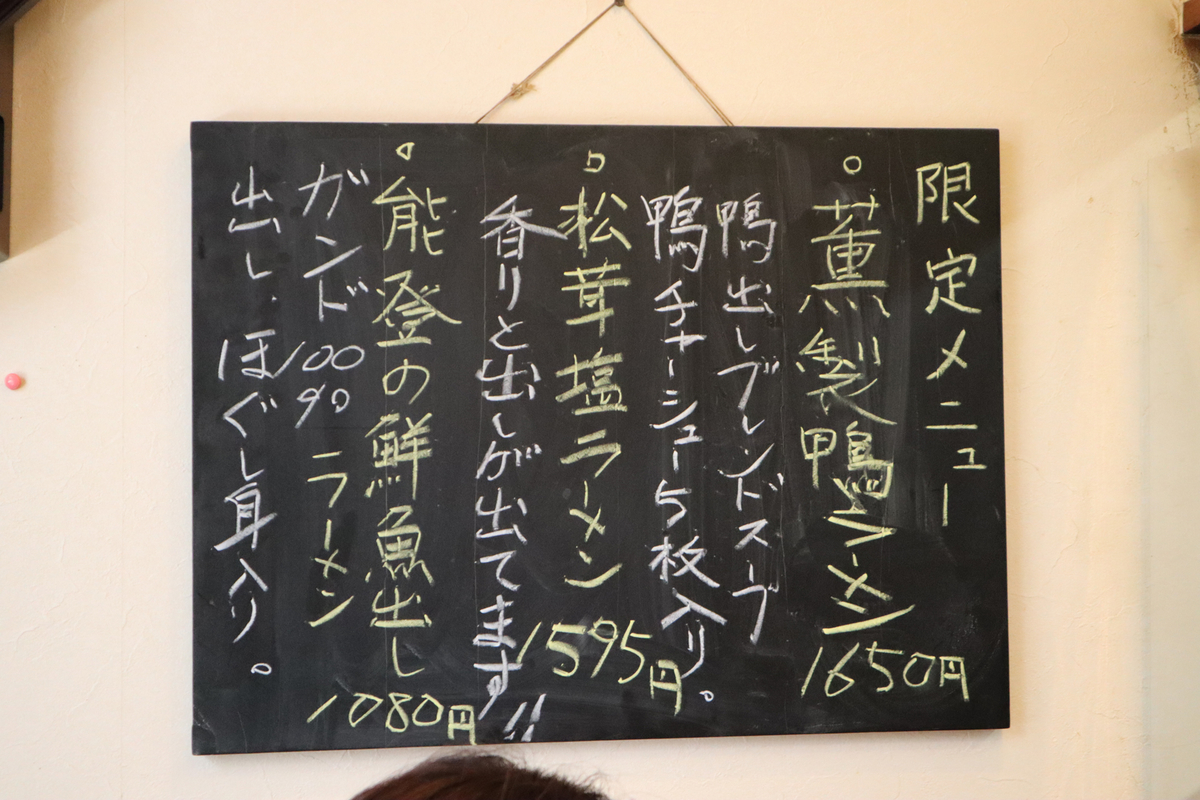 限定メニュー
。薫製鴨ラーメン 1650円
鴨出しブレンドスープ
鴨チャーシュー5枚入り。
。松茸塩ラーメン 1595円
香りと出しが出てます!!
。能登の鮮魚出し 1080円
ガンド100% ラーメン
出し ほぐし身入り。